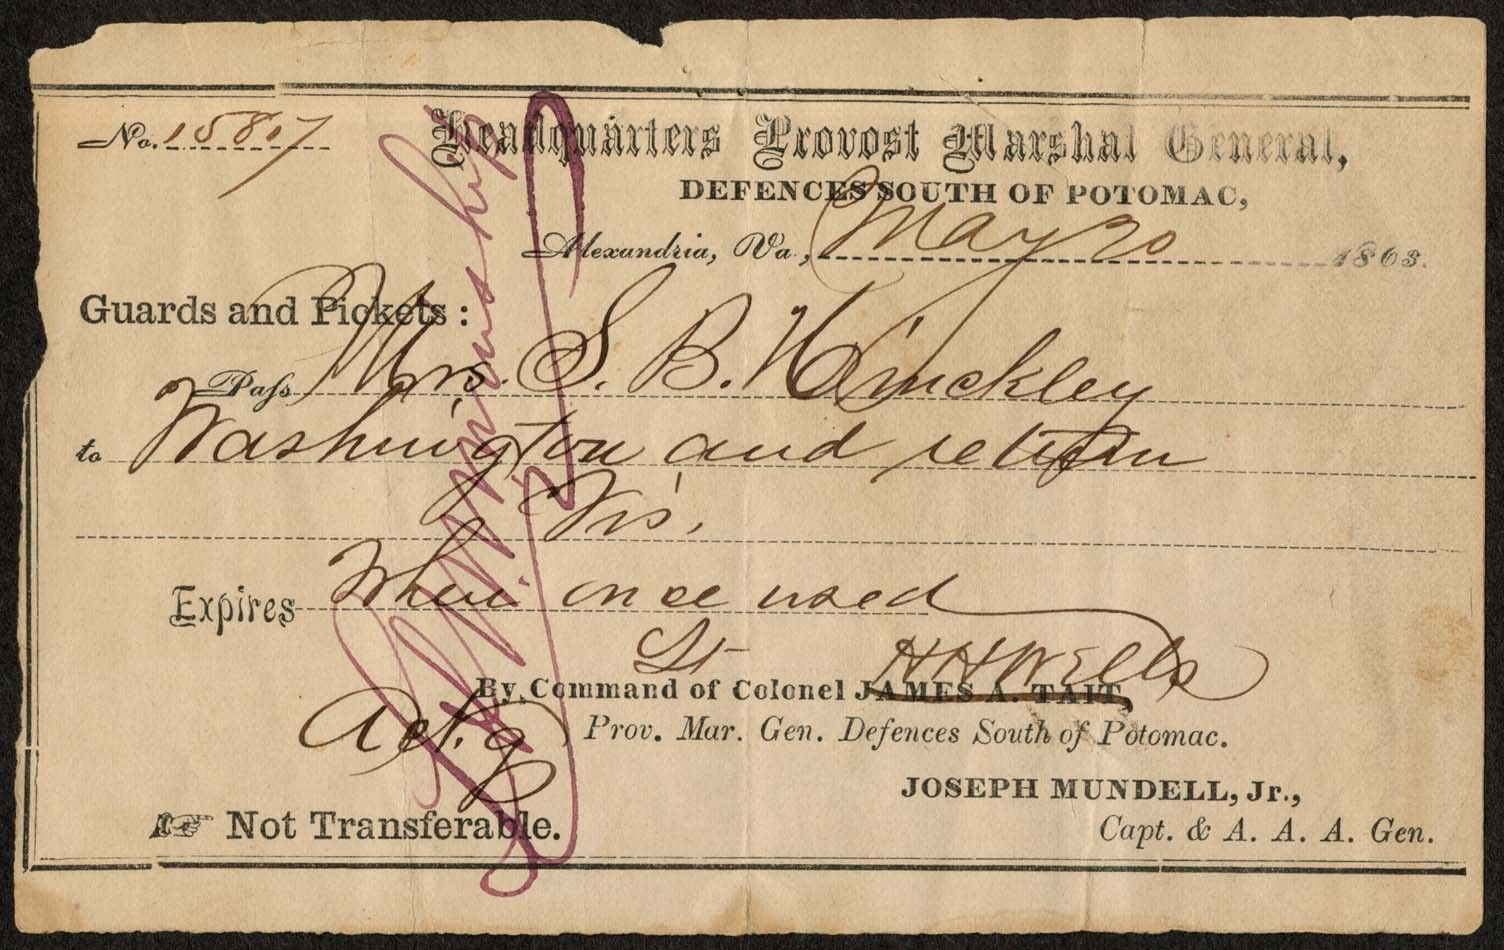 No. 15807
Headquarters Provost Marshal General,
DEFENCES SOUTH OF POTOMAC,
Alexandria, Va., May 20 1863.
Guards and Pickets:
Pass Mrs. S. B. Hinckley
to Washington and return
Expires When once used
Lt HHWells
By Command of Colonel JAMES A. TAIT,
Act. g
Prov. Mar. Gen. Defences South of Potomac.
JOSEPH MUNDELL, Jr.,
Not Transferable.
Capt. & A. A. A. Gen.